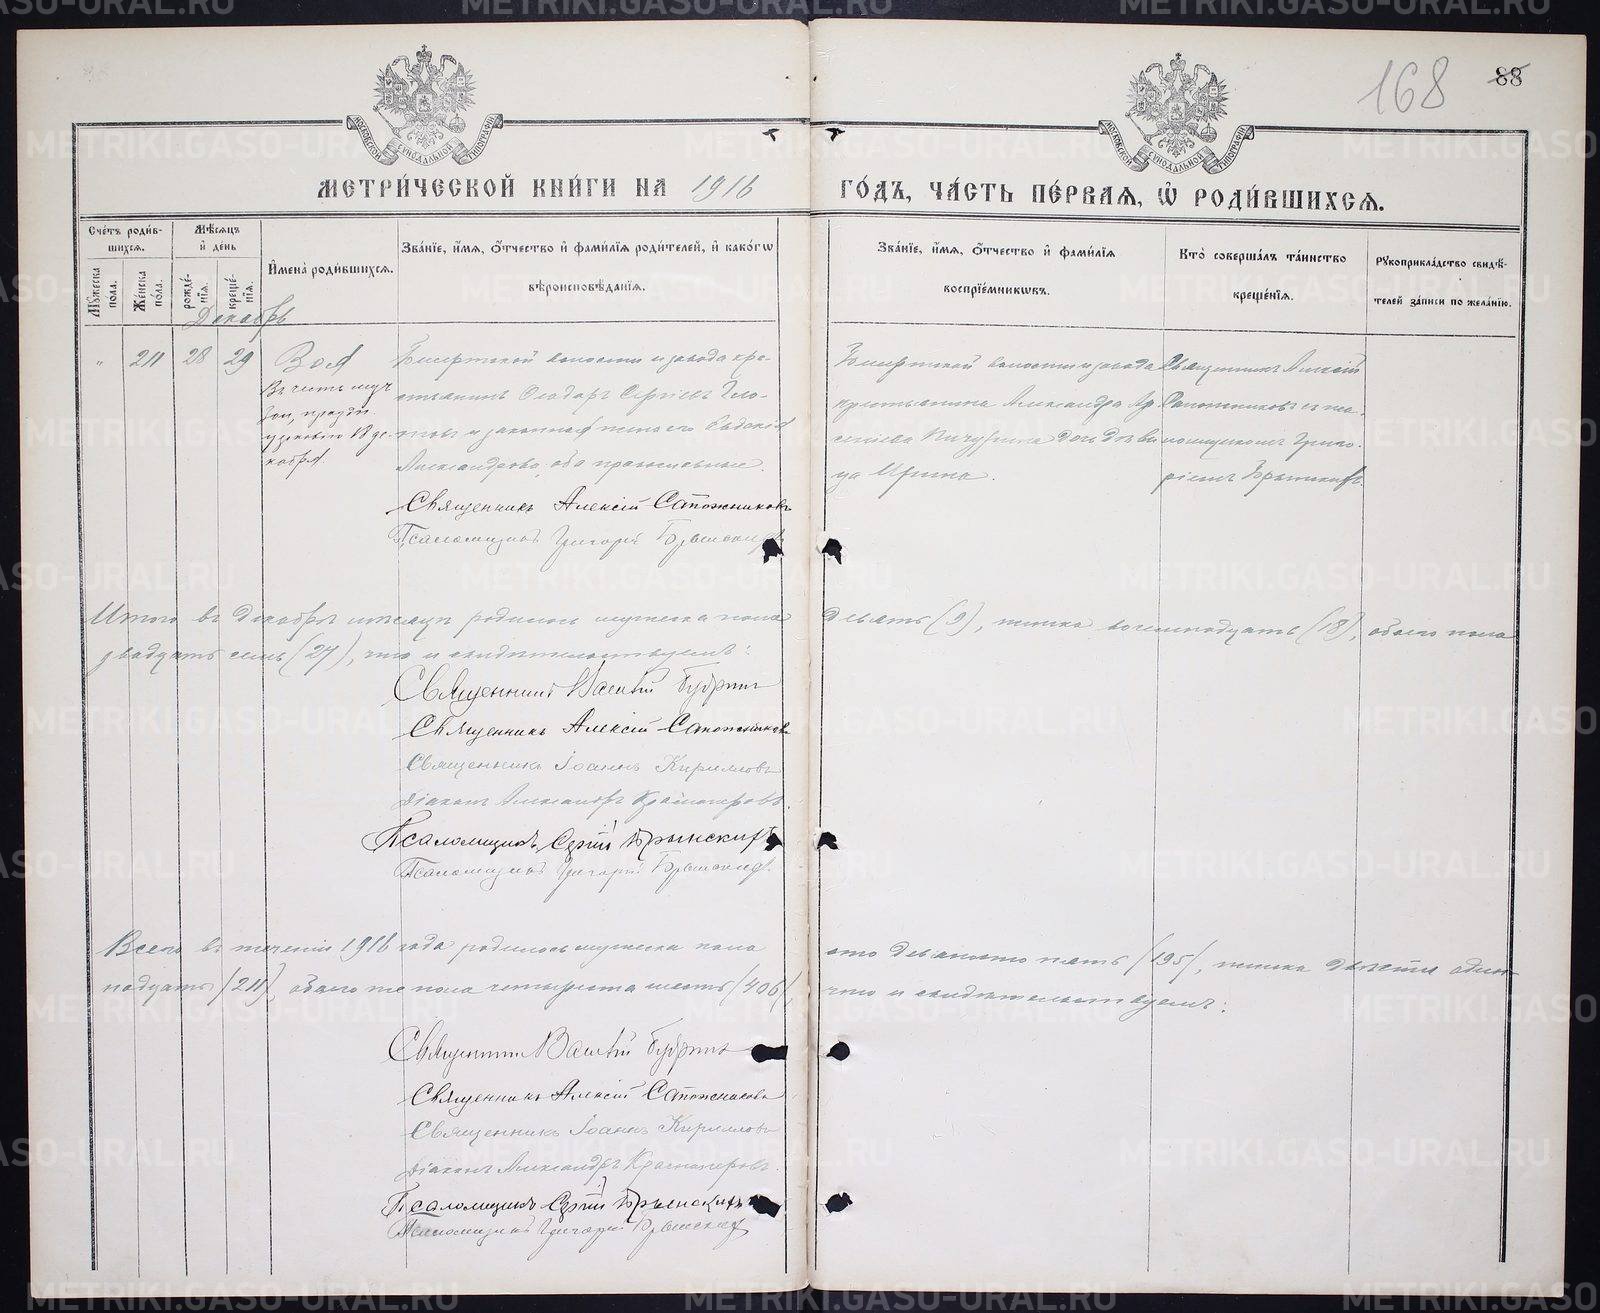 168
88
МОСКОВСКОЙ СѴНОДАЛЬНОЙ ТИПОГРАФІИ
МОСКОВСКОЙ СѴНОДАЛЬНОЙ ТИПОГРАФІИ
МЕТРИ́ЧЕСКОЙ КНИ́ГИ НА 1916
ГО́ДЪ, ЧА́СТЬ ПЕ́РВАЯ, Ѡ РОДИ́ВШИХСЯ.
Сче́тъ роди́в-
шихся.
Му́жеска пола.
Же́нска по́ла.
Мѣ́сяцъ
и де́нь
рожде́-
нїя.
креще́-
нїя.
И́мена̀ роди́вшихся.
Зва́нїе, и́мя, о́тчество и фами́лїя роди́телей, и како́гѡ
вѣроисповѣ́данїя.
Зва́нїе, и́мя, о́тчество и фами́лїя
воспрїе́мникѡвъ.
Кто̀ соверша́лъ та́инство
креще́нїя.
Рукоприкла́дство свидѣ́-
телей за́писи по жела́нїю.
Декабрь
" 211 28 29 Зоя
Въ честь муч
празд.
18 де-
кабря.
волости и завода кре-
стьянинъ Ѳеодоръ Сергіевъ
и законная жена его Евдокія
Александрова, оба православные.
Священникъ Алексій Сапожниковъ
Псаломщикъ Григорій
волости и завода
крестьянина Александра Ар-
сеніева Пичугина дочь дѣви
ца Ирина.
Священникъ Алексій
Сапожниковъ съ пса-
ломщикомъ Григо-
ріемъ
Итого въ Декабрѣ мѣсяцѣ родилось мужеска пола девять (9), женска восемнадцать (18), обоего пола
двадцать семь (27), что и свидѣтельствуемъ:
Священникъ Василій
Священникъ Алексій Сапожниковъ
Священникъ Іоаннъ Кирилловъ
Діаконъ Александръ Красноперовъ.
Псаломщикъ Сергій
Псаломщикъ Григорій
Всего въ теченіи 1916 года родилось мужеска пола сто девяносто пять (195), женска двѣсти один-
надцать (211), обоего же пола четыреста шесть (406), что и свидѣтельствуемъ:
Священникъ Василій
Священникъ Алексій Сапожниковъ
Священникъ Іоаннъ Кирилловъ
Діаконъ Александръ Красноперовъ.
Псаломщикъ Сергій
Псаломщикъ Григорій
METRIKI.GASO-URAL.RU